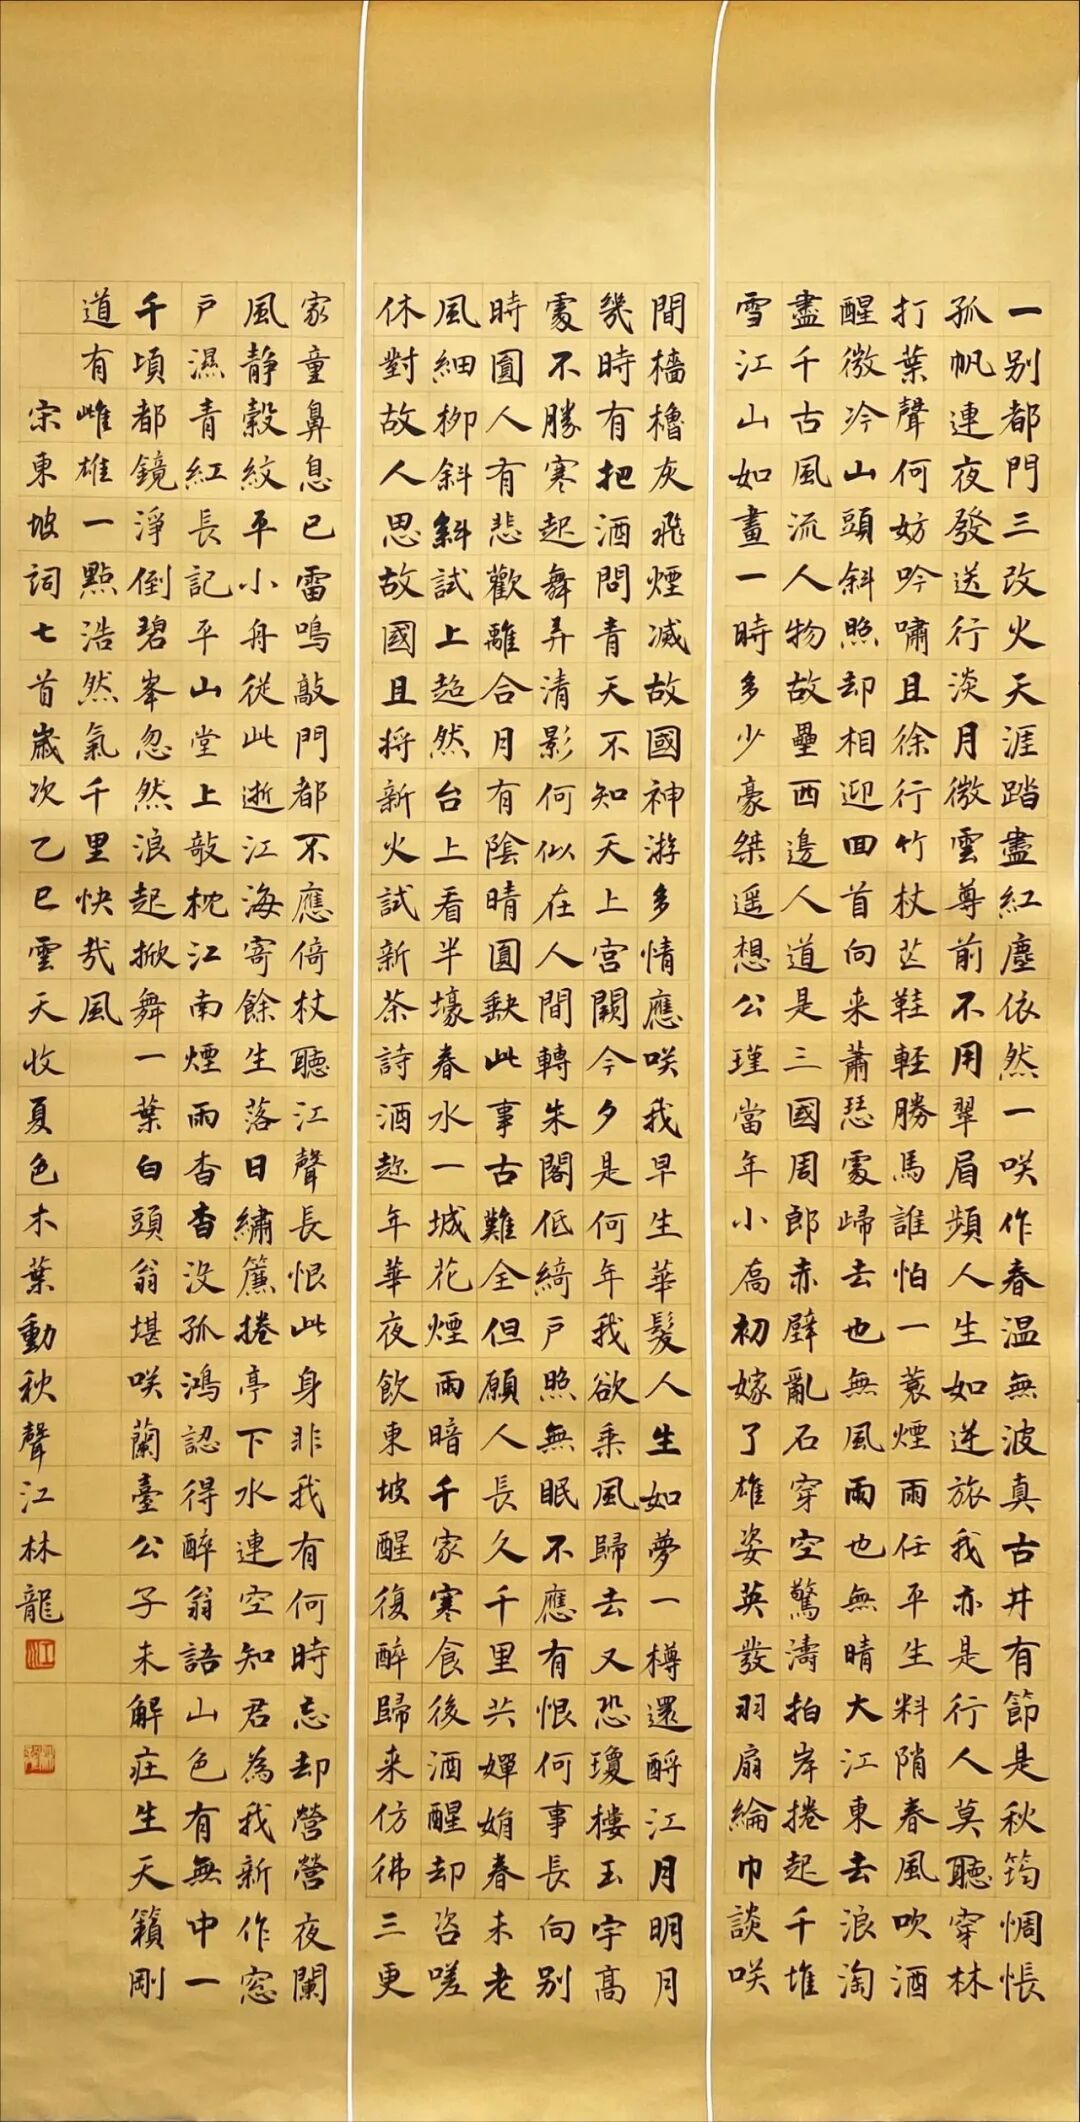 一别都門三改火天涯踏盡紅塵依然一咲作春温無波真古井有節是秋筠惆悵
孤帆連夜發送行淡月微雲尊前不用翠眉頻人生如逆旅我亦是行人莫聽穿林
打葉聲何妨吟嘯且徐行竹杖芒鞋軽勝馬誰怕一蓑煙雨任平生料陗春風吹酒
醒微冷山頭斜照却相迎回首向来蕭瑟處歸去也無風雨也無晴大江東去浪淘
盡千古風流人物故壘西邊人道是三國周郎赤壁亂石穿空驚濤拍岸捲起千堆
雪江山如畫一時多少豪桀遥想公瑾當年小喬初嫁了雄姿英發羽扇綸巾談咲
間檣櫓灰飛煙滅故國神游多情應咲我早生華髮人生如夢一樽還酹江月明月
幾時有把酒問青天不知天上宮闕今夕是何年我欲乘風歸去又恐瓊樓玉宇高
處不勝寒起舞弄清影何似在人間轉朱閣低綺戶照無眠不應有恨何事長向别
時圓人有悲歡離合月有陰晴圓缺此事古難全但願人長久千里共嬋娟春未老
風細柳斜斜試上超然台上看半壕春水一城花煙雨暗千家寒食後酒醒却咨嗟
休對故人思故國且将新火試新茶詩酒趂年華夜飲東坡醒復醉歸来仿彿三更
家童鼻息已雷鳴敲門都不應倚杖聽江聲長恨此身非我有何時忘却營營夜闌
風静縠紋平小舟從此逝江海寄餘生落日繡簾捲亭下水連空知君為我新作窓
戶濕青紅長記平山堂上敧枕江南煙雨杳杳没孤鴻認得醉翁語山色有無中一
千頃都鏡淨倒碧峯忽然浪起掀舞一葉白頭翁堪咲蘭臺公子未解庄生天籟剛
道有雌雄一點浩然氣千里快哉風
宗東坡詞七首歲次乙巳雲天收夏色木葉動秋聲江林龍